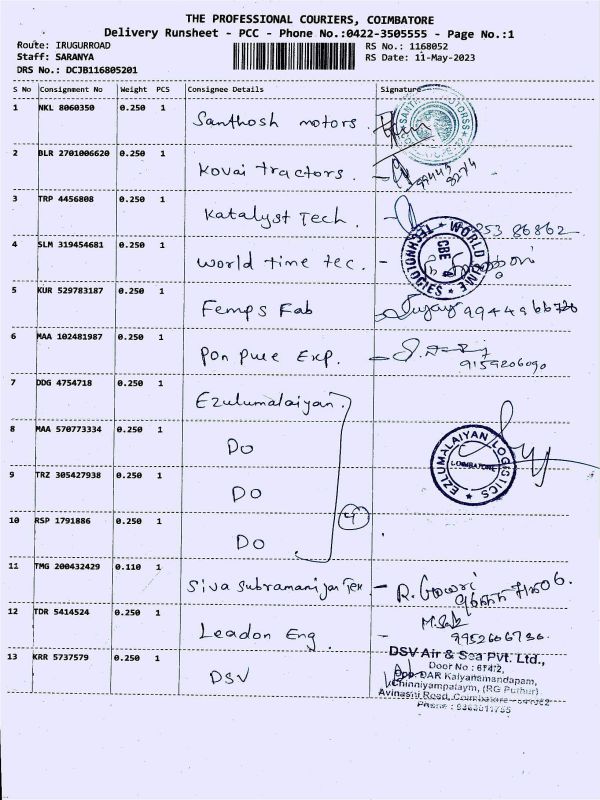 THE PROFESSIONAL COURIERS, COIMBATORE
Delivery Runsheet - PCC - Phone No.:0422-3505555 - Page No.:1
Route: IRUGURROAD RS No.: 1168052
Staff: SARANYA RS Date: 11-May-2023
DRS No.: DCJB116805201
S No Consignment No Weight PCS Consignee Details Signature
1 NKL 8060350 0.250 1 Santhosh motors.
2 BLR 2701006620 0.250 1 Kovai tractors.
3 TRP 4456808 0.250 1 Katalyst Tech. 253 86862
4 SLM 319454681 0.250 1 World time tec. WORLD TIME TECHNOLOGIES CBE
5 KUR 529783187 0.250 1 Femps Fab
6 MAA 102481987 0.250 1 Pon pure Exp. 9159206090
7 DDG 4754718 0.250 1 Ezulumalaiyan.
8 MAA 570773334 0.250 1 DO EZLUMALAIYAN LOGISTICS COIMBATORE
9 TRZ 305427938 0.250 1 DO
10 RSP 1791886 0.250 1 DO.
11 TMG 200432429 0.110 1 Siva subramaniyan Tex R. Gowri
12 TDR 5414524 0.250 1 Leadon Eng. 9952606736.
13 KRR 5737579 0.250 1 DSV
DSV Air & Sea Pvt. Ltd.,
Door No :
Opp. DAR Kalyanamandapam,
Chinniyampalaym, (RG Puthur)
Avinashi Road, Coimbatore
Phone :